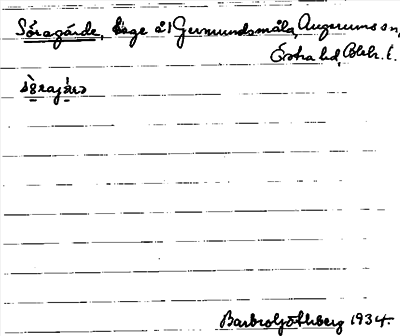 Söragärde, äge å Germundsmåla, Augerums sn,
Östra hd, Blek. l.
Barbro Göthberg 1934.